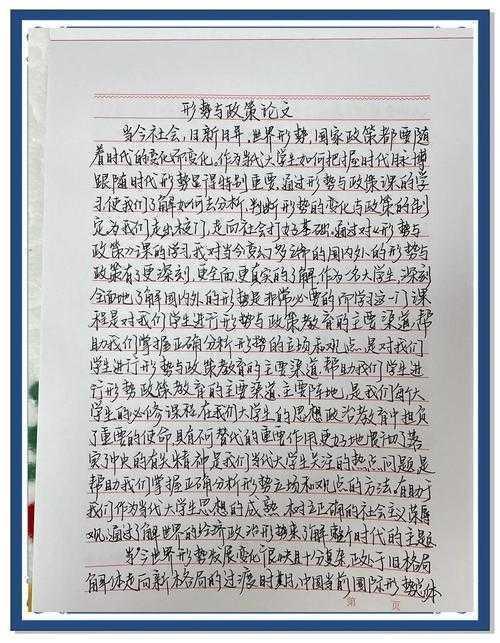 形势与政策论文
当今社会,日新月异,世界形势,国家政策都要随
着时代的变化而变化,作为当代大学生如何把握时代脉搏
跟随时代形势显得特别重要,通过形势与政策课的学
习,使我们了解如何去分析,判断形势的变化与政策的制
定,为我们走出校门,走向社会打好基础,通过对《形势与
政策》课的学习,我对当今变幻多端的国内外的形势与
政策有了更深刻,更全面,更真实的了解,作为一名大学生,深刻
全面地了解国内外的形势是非常必要的,而学习这一门课
程是对我们学生进行形势与政策教育的主要渠道,帮
助我们掌握正确分析形势的立场和观点,是对我们
学生进行形势与政策教育的主要渠道,帮助我们学生进
行形势政策教育的主要渠道,主要阵地,是我们每个大
学生的必修课程,在我们大学生的思想政治教育中担负
了重要的使命,具有不可替代的重要作用,更好地贯彻了落
实中央的有关精神是我们当代大学生关注的热点问题,是
帮助我们掌握正确分析形势立场和观点的方法,有助于
我们作为当代大学生思想的成熟,树立正确的社会主义荣辱
观,通过了解世界的经济政治形势来了解整个时代的主题
当今世界形势发展变化很快且十分复杂,正处于旧格局
解体走向新格局的过渡时期,中国当前国际形势总体
第 页